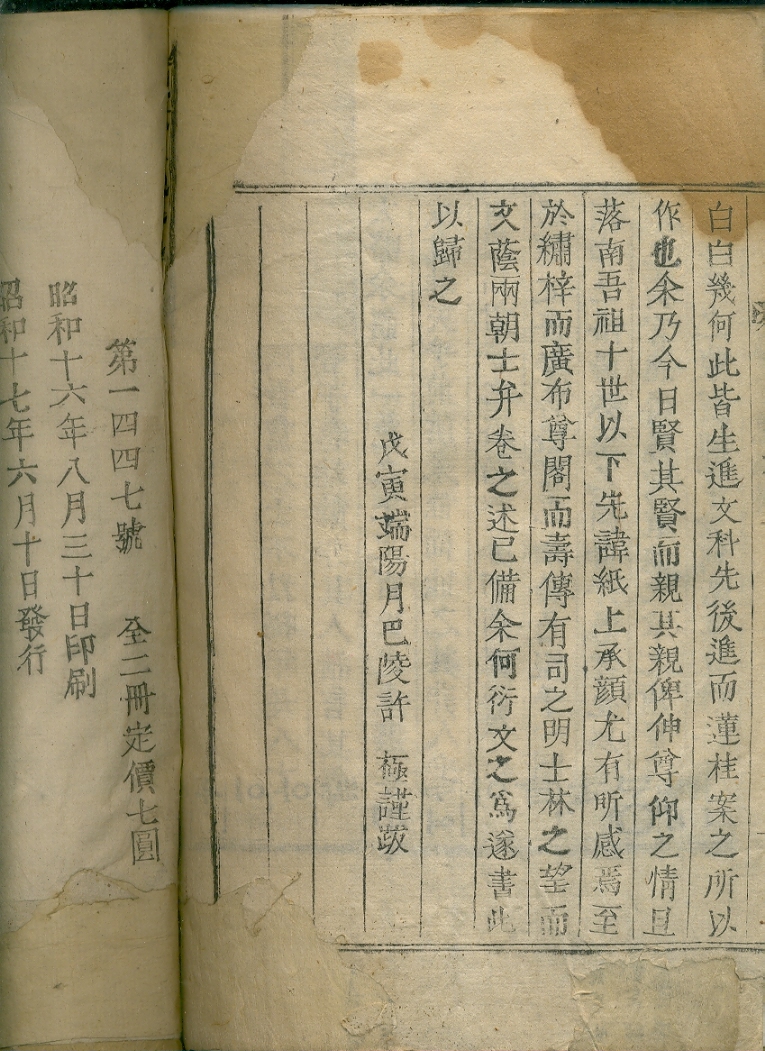 白白幾何此皆生進文科先後進而蓮桂案之所以
作也余乃今日賢其賢而親其親俾伸尊仰之情且
落南吾祖十世以下先諱紙上承顔尤有所感焉至
於繡梓而廣布尊閣而壽傳有司之明士林之望而
文蔭兩朝士弁卷之述已備余何衍文之爲遂書此
以歸之
戊寅端陽月巴陵許 極謹跋
第一四四七號 全二冊定價七圓
昭和十六年八月三十日印刷
昭和十七年六月十日發行